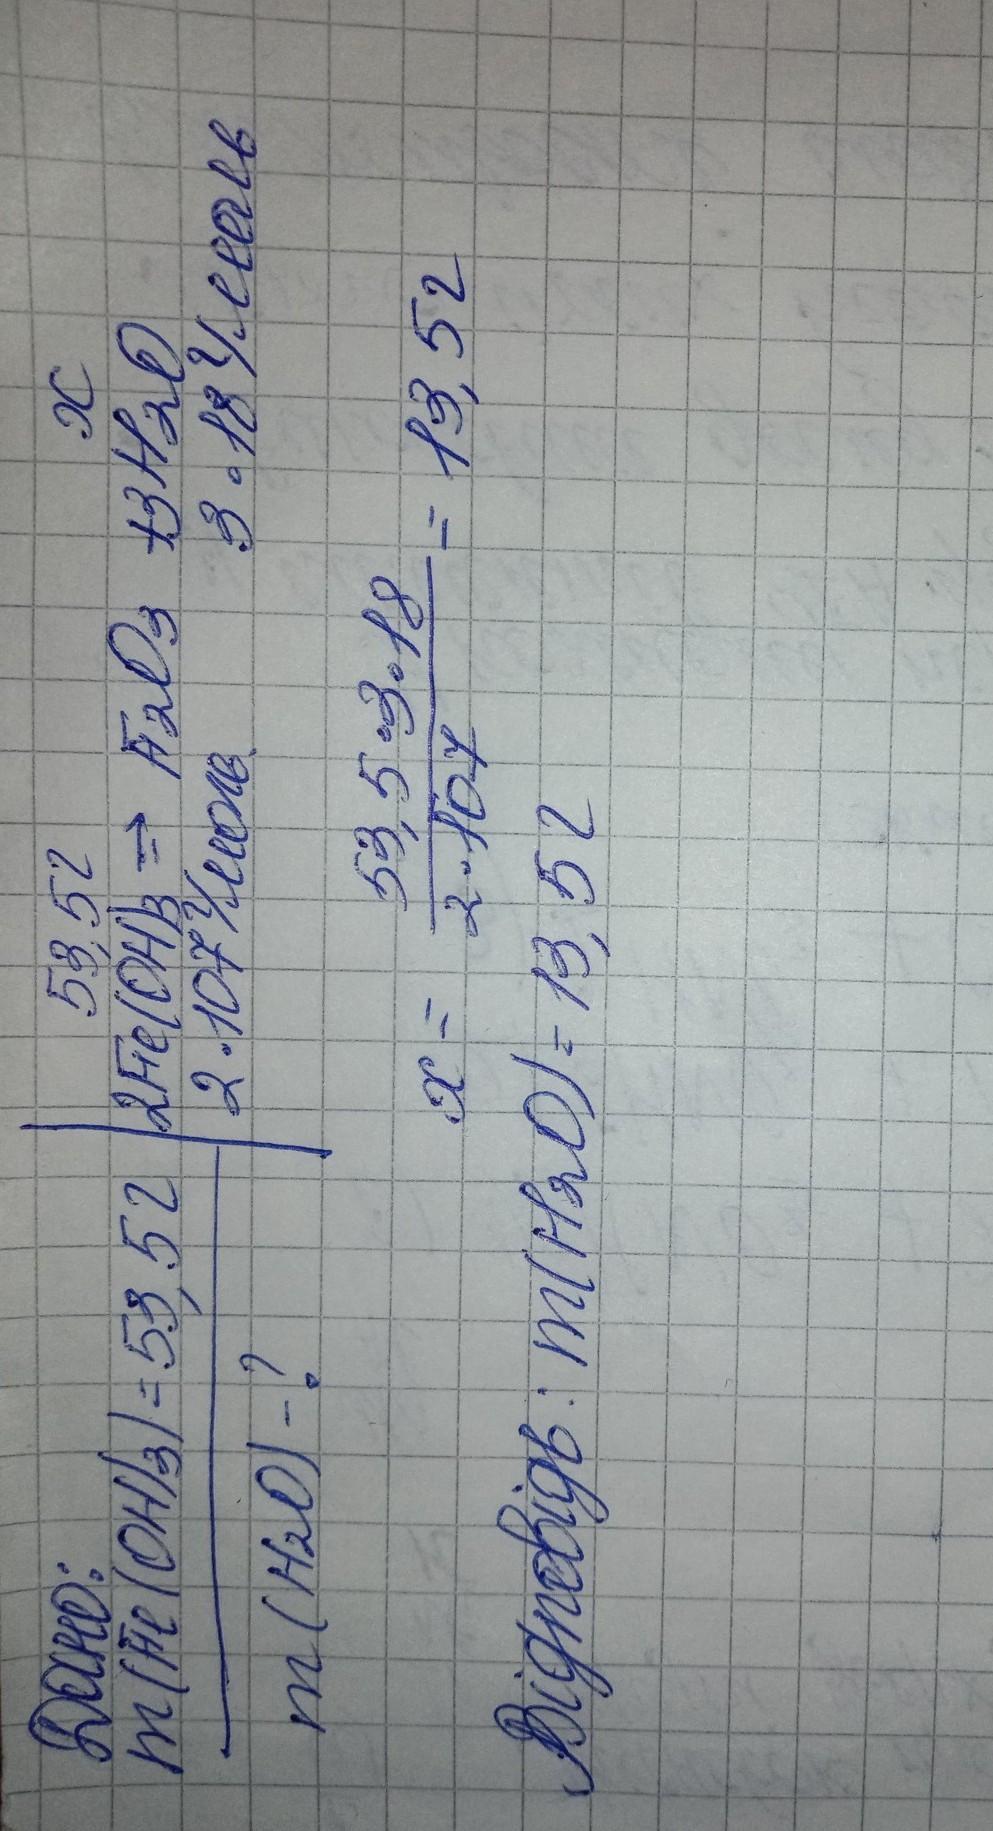 Дано:
m(Fe(OH)3)=53,5г
m(H2O)-?
53,5г x
2Fe(OH)3 => F2O3 +3H2O
2·107г/моль 3·18г/моль
x = 53,5·3·18 / 2·107 = 13,5г
Відповідь: m(H2O)=13,5г